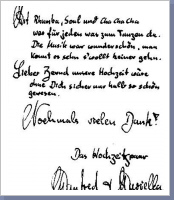 Mit Rhumba, Soul und Cha Cha Cha
war für jeden was zum Tanzen da.
Die Musik war wunderschön, man
konnt es sehn s'wollt keiner gehn.
Lieber Bernd unsere Hochzeit wäre
ohne Dich sicher nur halb so schön
gewesen.
Nochmals vielen Dank!
Das Hochzeitspaar
Manfred & Mariella